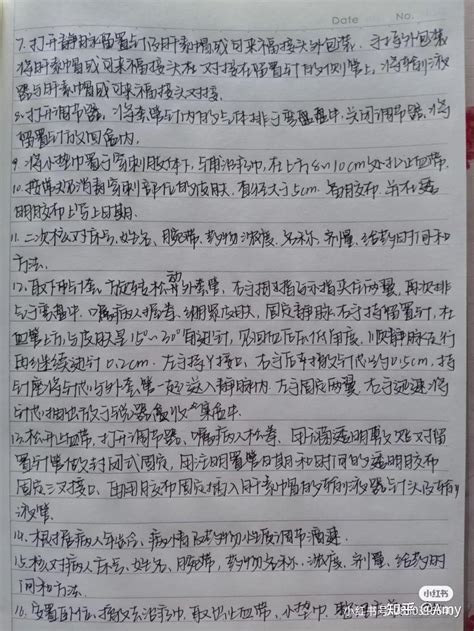 Date No.
7. 打开静脉留置针及肝素帽或可来福接头外包装. 手持外包装
将肝素帽或可来福接头在对接在留置针的侧管上, 将输液
器与肝素帽或可来福接头对接.
8. 打开调节器, 将套管针内的气体排于弯盘中. 关闭调节器, 将
留置针放回盒内.
9. 将小垫巾置于穿刺肢体下, 与消毒巾, 在上方8~10cm处扎止血带.
10. 按常规消毒穿刺部位的皮肤. 直径大于5cm. 备用胶布, 并在透
明胶布上写上日期.
11. 二次核对床号、姓名、腕带、药物浓度、名称、剂量、给药时间和
方法.
12. 取下针套, 旋转松动外套管, 右手拇指与示指夹住两翼, 再次排
气于弯盘中. 嘱病人握拳. 绷紧皮肤, 固定静脉. 右手持留置针, 在
血管上方, 与皮肤呈15°~30°角进针, 见回血后压低角度, 顺静脉走行
再继续进针0.2cm. 左手持Y接口, 右手后撤针芯约0.5cm, 持
针座将针芯与外套管一起送入静脉内. 左手固定两翼, 右手迅速将
针芯抽出放于锐器盒收集中.
13. 松开止血带, 打开调节器, 嘱病人松拳, 用无菌透明敷贴对留
置针管做封闭式固定, 用注明置管日期和时间的透明胶布
固定三叉接口, 再用胶布固定插入肝素帽的输液器针头及输
液管.
14. 根据病人年龄、病情及药物性质调节滴速.
15. 核对病人床号、姓名、腕带, 药物名称、浓度、剂量、给药时
间和方法.
16. 安置卧位, 撤去治疗巾, 取出止血带、小垫巾
小红书
小红书号
知乎 @Amy